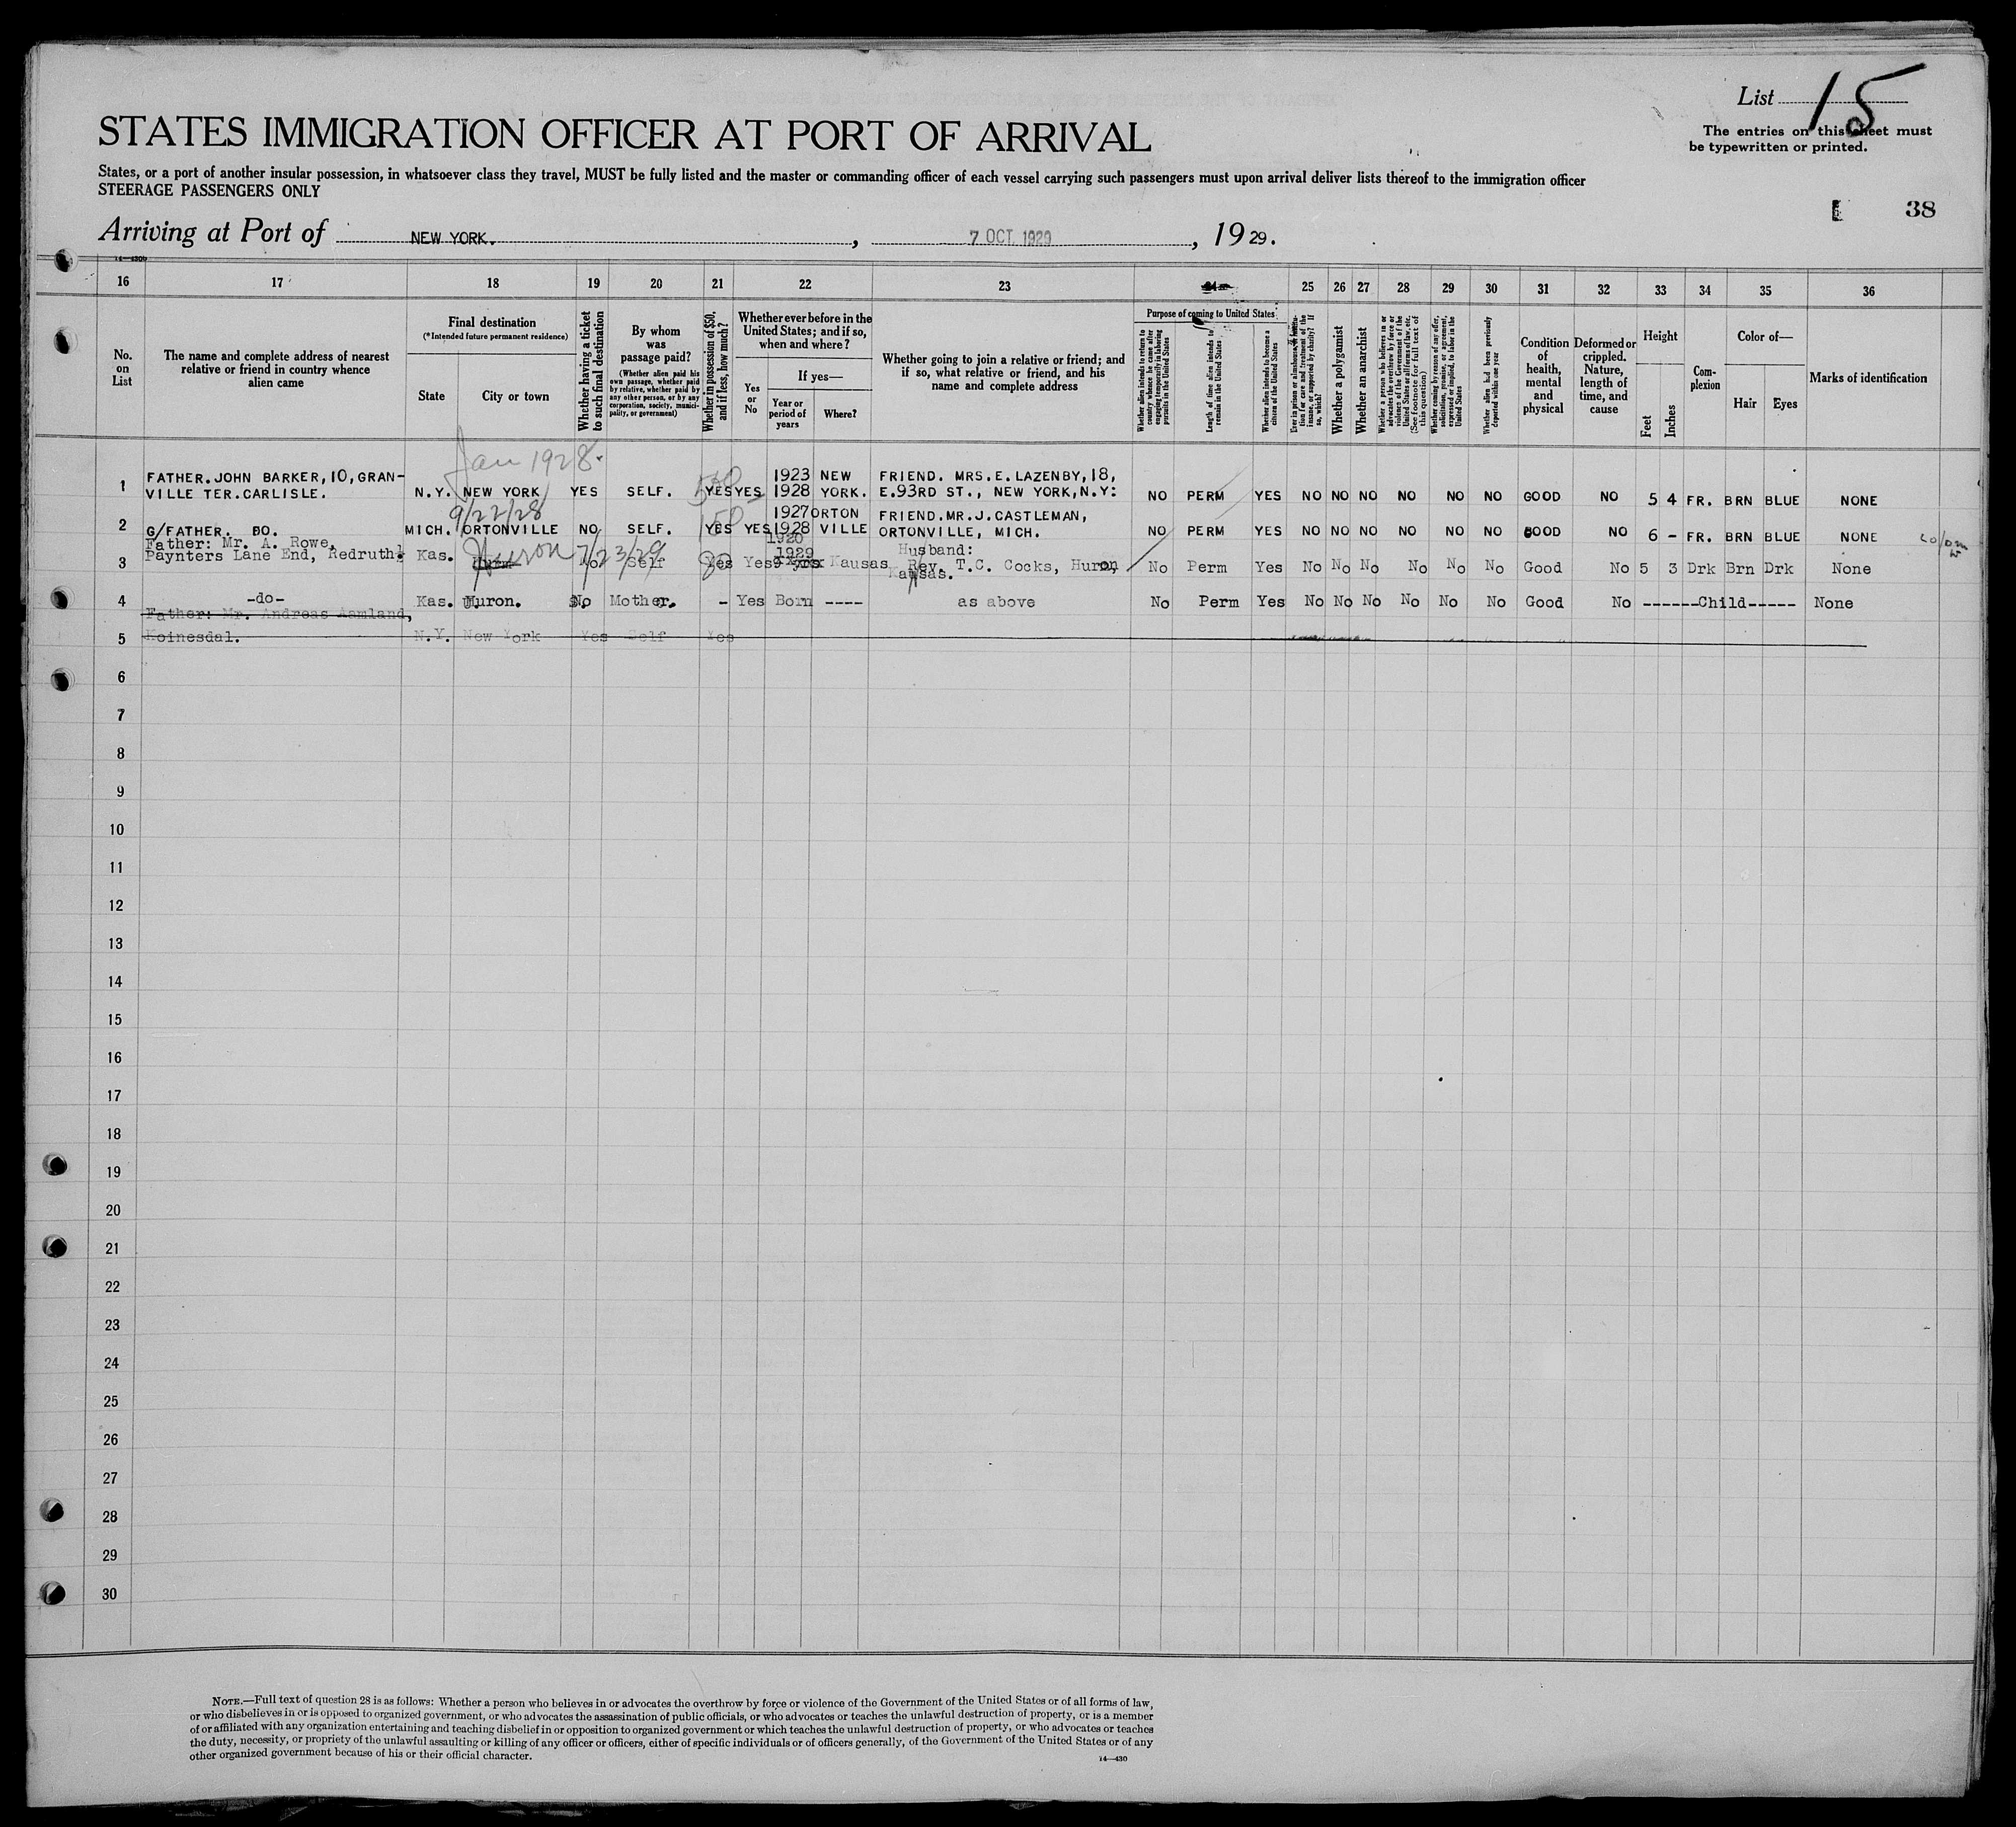 List 15
STATES IMMIGRATION OFFICER AT PORT OF ARRIVAL
The entries on this sheet must
be typewritten or printed.
States, or a port of another insular possession, in whatsoever class they travel, MUST be fully listed and the master or commanding officer of each vessel carrying such passengers must upon arrival deliver lists thereof to the immigration officer
STEERAGE PASSENGERS ONLY
38
Arriving at Port of NEW YORK. , 7 OCT 1929 , 19 29.
16 17 18 19 20 21 22 23 24 25 26 27 28 29 30 31 32 33 34 35 36
No. on List
The name and complete address of nearest relative or friend in country whence alien came
Final destination
(*Intended future permanent residence)
State
City or town
Whether having a ticket to such final destination
By whom was passage paid?
(Whether alien paid his own passage, whether paid by relative, whether paid by any other person, or by any corporation, society, municipality, or government)
Whether in possession of $50, and if less, how much?
Whether ever before in the United States; and if so, when and where?
Yes or No
If yes—
Year or period of years
Where?
Whether going to join a relative or friend; and if so, what relative or friend, and his name and complete address
Purpose of coming to United States
Whether alien intends to return to country whence he came after engaging temporarily in laboring pursuits in the United States
Length of time alien intends to remain in the United States
Whether alien intends to become a citizen of the United States
Ever in prison or almshouse, or institution for care and treatment of the insane, or supported by charity? If so, which?
Whether a polygamist
Whether an anarchist
Whether a person who believes in or advocates the overthrow by force or violence of the Government of the United States or all forms of law, etc. (See footnote for full text of this question)
Whether coming by reason of any offer, solicitation, promise, or agreement, expressed or implied, to labor in the United States
Whether alien had been previously deported within one year
Condition of health, mental and physical
Deformed or crippled. Nature, length of time, and cause
Height
Feet
Inches
Complexion
Color of—
Hair
Eyes
Marks of identification
Jan 1928.
1 FATHER. JOHN BARKER, 10, GRAN- 1923 NEW FRIEND. MRS. E. LAZENBY, 18,
VILLE TER. CARLISLE. N.Y. NEW YORK YES SELF. YES YES 1928 YORK. E. 93RD ST., NEW YORK, N.Y: NO PERM YES NO NO NO NO NO NO GOOD NO 5 4 FR. BRN BLUE NONE
9/22/28 150 1927 ORTON FRIEND. MR. J. CASTLEMAN,
2 G/FATHER. DO. MICH. ORTONVILLE NO SELF. YES YES 1928 VILLE ORTONVILLE, MICH. NO PERM YES NO NO NO NO NO NO GOOD NO 6 - FR. BRN BLUE NONE
Father: Mr. A. Rowe, Huron 7/23/29 1920 1929 Husband:
3 Paynters Lane End, Redruth. Kas. No Self 80 Yes Yes Kausas Rev. T.C. Cocks, Huron, Kansas. No Perm Yes No No No No No No Good No 5 3 Drk Brn Drk None
4 -do- Kas. Huron. No Mother. - Yes Born ---- as above No Perm Yes No No No No No No Good No ------Child----- None
Father: Mr. Andreas Aamland,
5 Koinesdal. N.Y. New York Yes Self Yes
6
7
8
9
10
11
12
13
14
15
16
17
18
19
20
21
22
23
24
25
26
27
28
29
30
NOTE.—Full text of question 28 is as follows: Whether a person who believes in or advocates the overthrow by force or violence of the Government of the United States or of all forms of law,
or who disbelieves in or is opposed to organized government, or who advocates the assassination of public officials, or who advocates or teaches the unlawful destruction of property, or is a member
of or affiliated with any organization entertaining and teaching disbelief in or opposition to organized government or which teaches the unlawful destruction of property, or who advocates or teaches
the duty, necessity, or propriety of the unlawful assaulting or killing of any officer or officers, either of specific individuals or of officers generally, of the Government of the United States or of any
other organized government because of his or their official character.
14—430